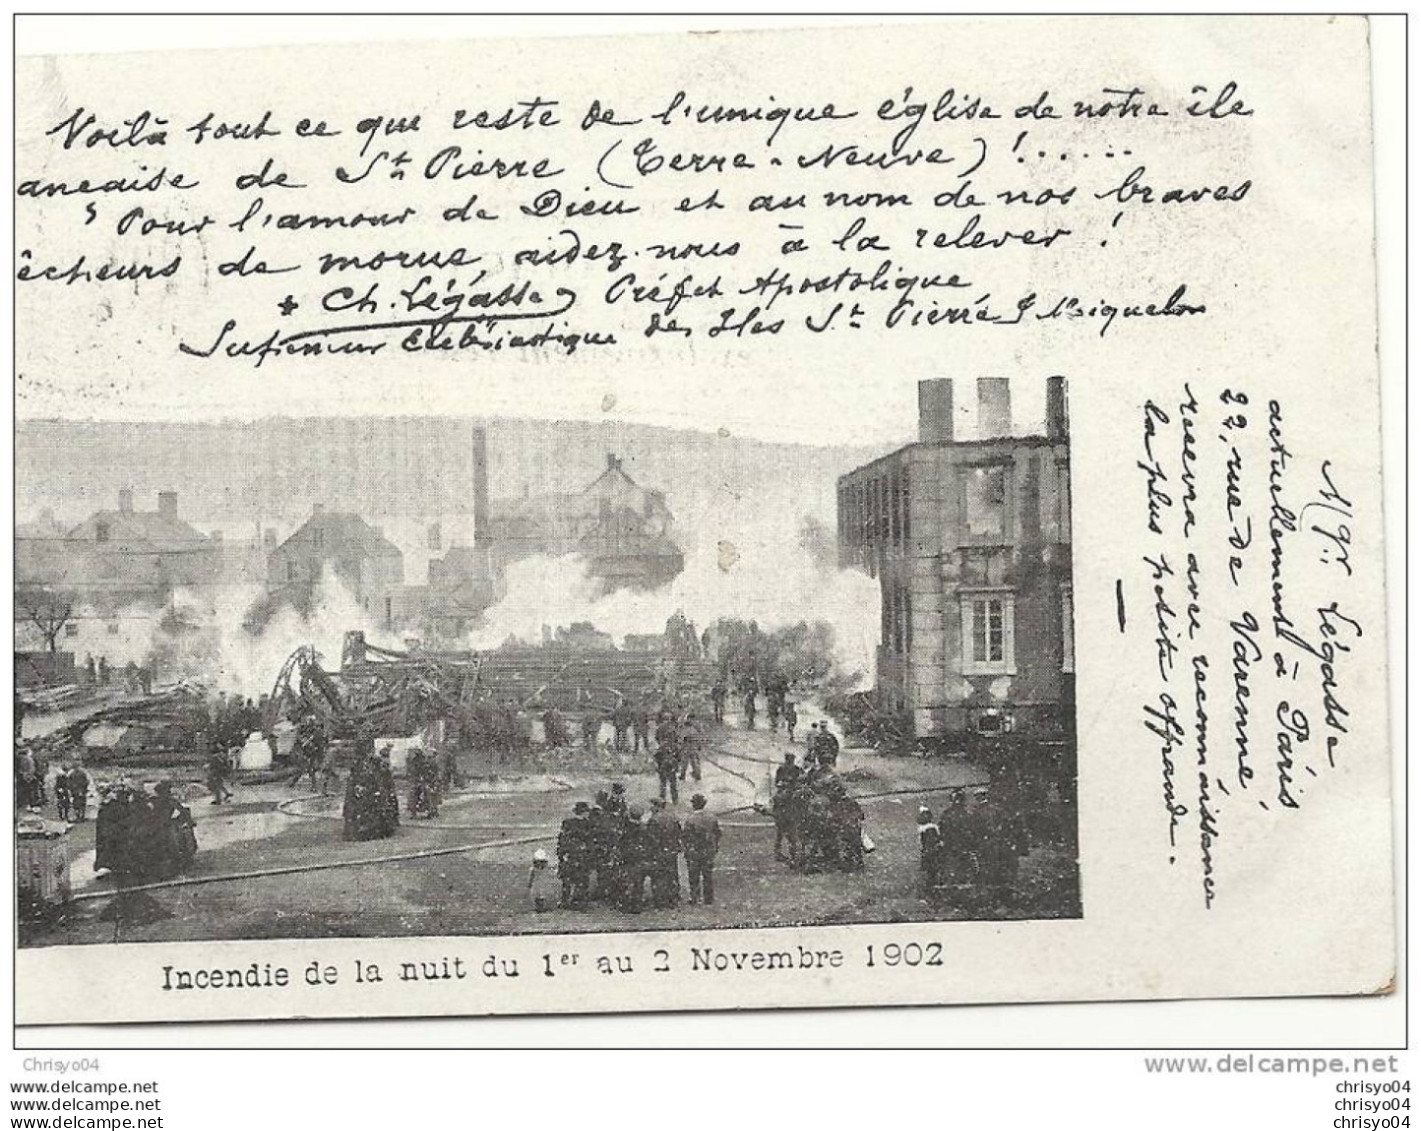 Voilà tout ce que reste de l'unique église de notre île
ançaise de St Pierre (Terre-Neuve)!......
Pour l'amour de Dieu et au nom de nos braves
êcheurs de morue, aidez-nous à la relever!
* Ch. Légasse Préfet Apostolique
Supérieur Ecclésiastique des Iles St Pierre & Miquelon
Mgr. Légasse
actuellement à Paris
22, rue de Varenne,
recevra avec reconnaissance
la plus petite offrande.
Incendie de la nuit du 1er au 2 Novembre 1902
Chrisyo04
www.delcampe.net
www.delcampe.net
www.delcampe.net
www.delcampe.net
chrisyo04
chrisyo04
chrisyo04